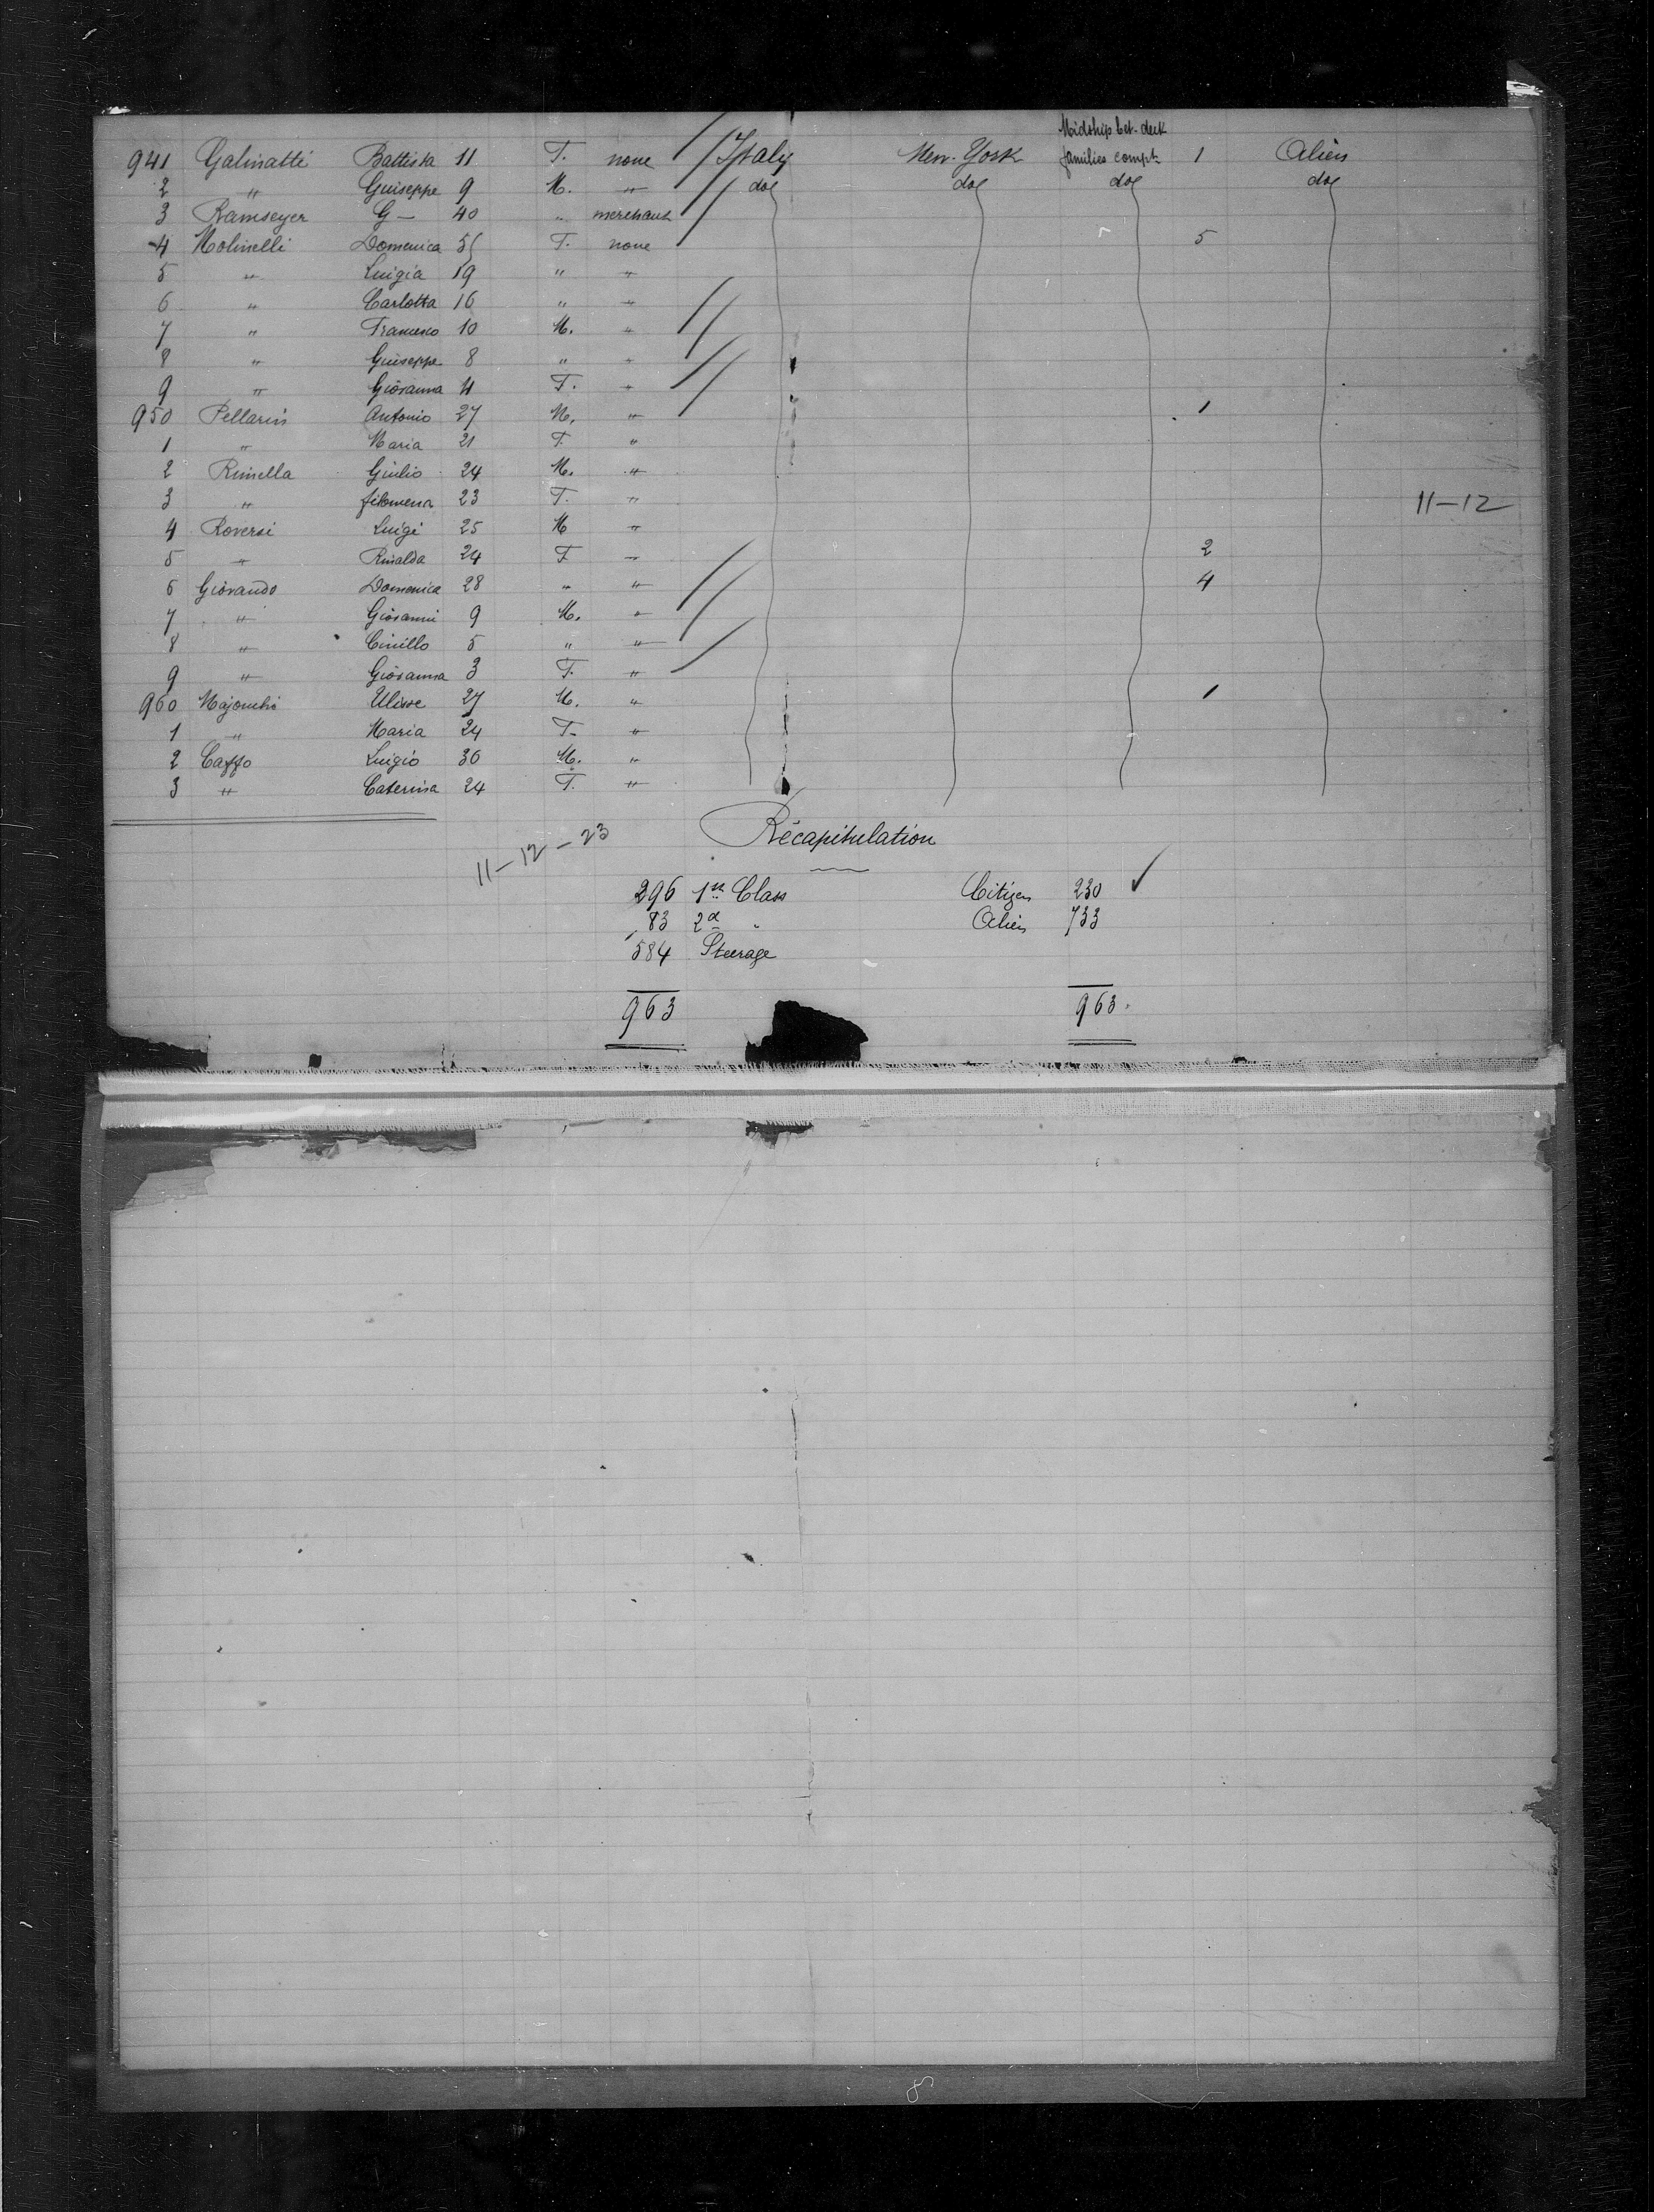 Midship bet. deck
941 Galinatti Battista 11 F. none Italy New-York families compt. 1 Alien
2 " Guiseppe 9 M. " do do do do
3 Ramseyer G— 40 " merchant
4 Molinelli Domenica 35 F. none 5
5 " Luigia 19 " "
6 " Carlotta 16 " "
7 " Francesco 10 M. "
8 " Guiseppe 8 " "
9 " Giovanna 4 F. "
950 Pellarin Antonio 27 M. " 1
1 " Maria 21 F. "
2 Rinella Giulio 24 M. "
3 " filomena 23 F. " 11-12
4 Roversi Luigi 25 M "
5 " Rinalda 24 F " 2
6 Giovando Domenica 28 " " 4
7 " Giovanni 9 M. "
8 " Cirillo 5 " "
9 " Giovanna 3 F. "
960 Majonchi Ulisse 27 M. " 1
1 " Maria 24 F. "
2 Caffo Luigio 30 M. "
3 " Caterina 24 F. "
11-12-23 Récapitulation
296 1st Class Citizen 230
83 2d " Alien 733
584 Steerage
963 963.